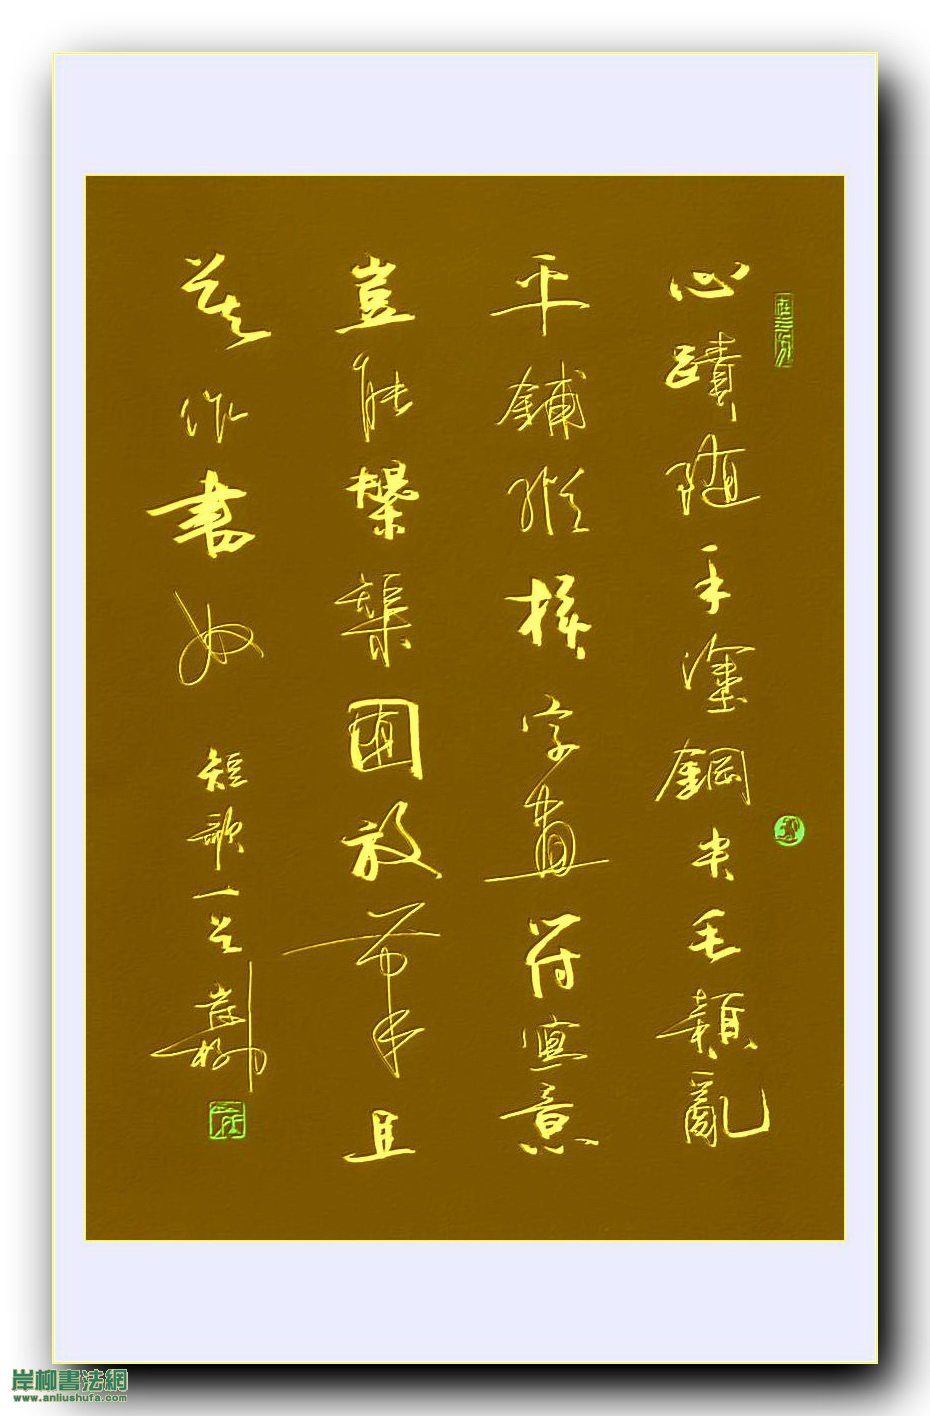 心蹟隨手塗鋼尖毛穎亂
平鋪縱橫字畫符寫意
豈能槼榘圈放筆手且
莫作書奴 短歌一首 岸柳
岸柳書法網
www.anliushufa.com